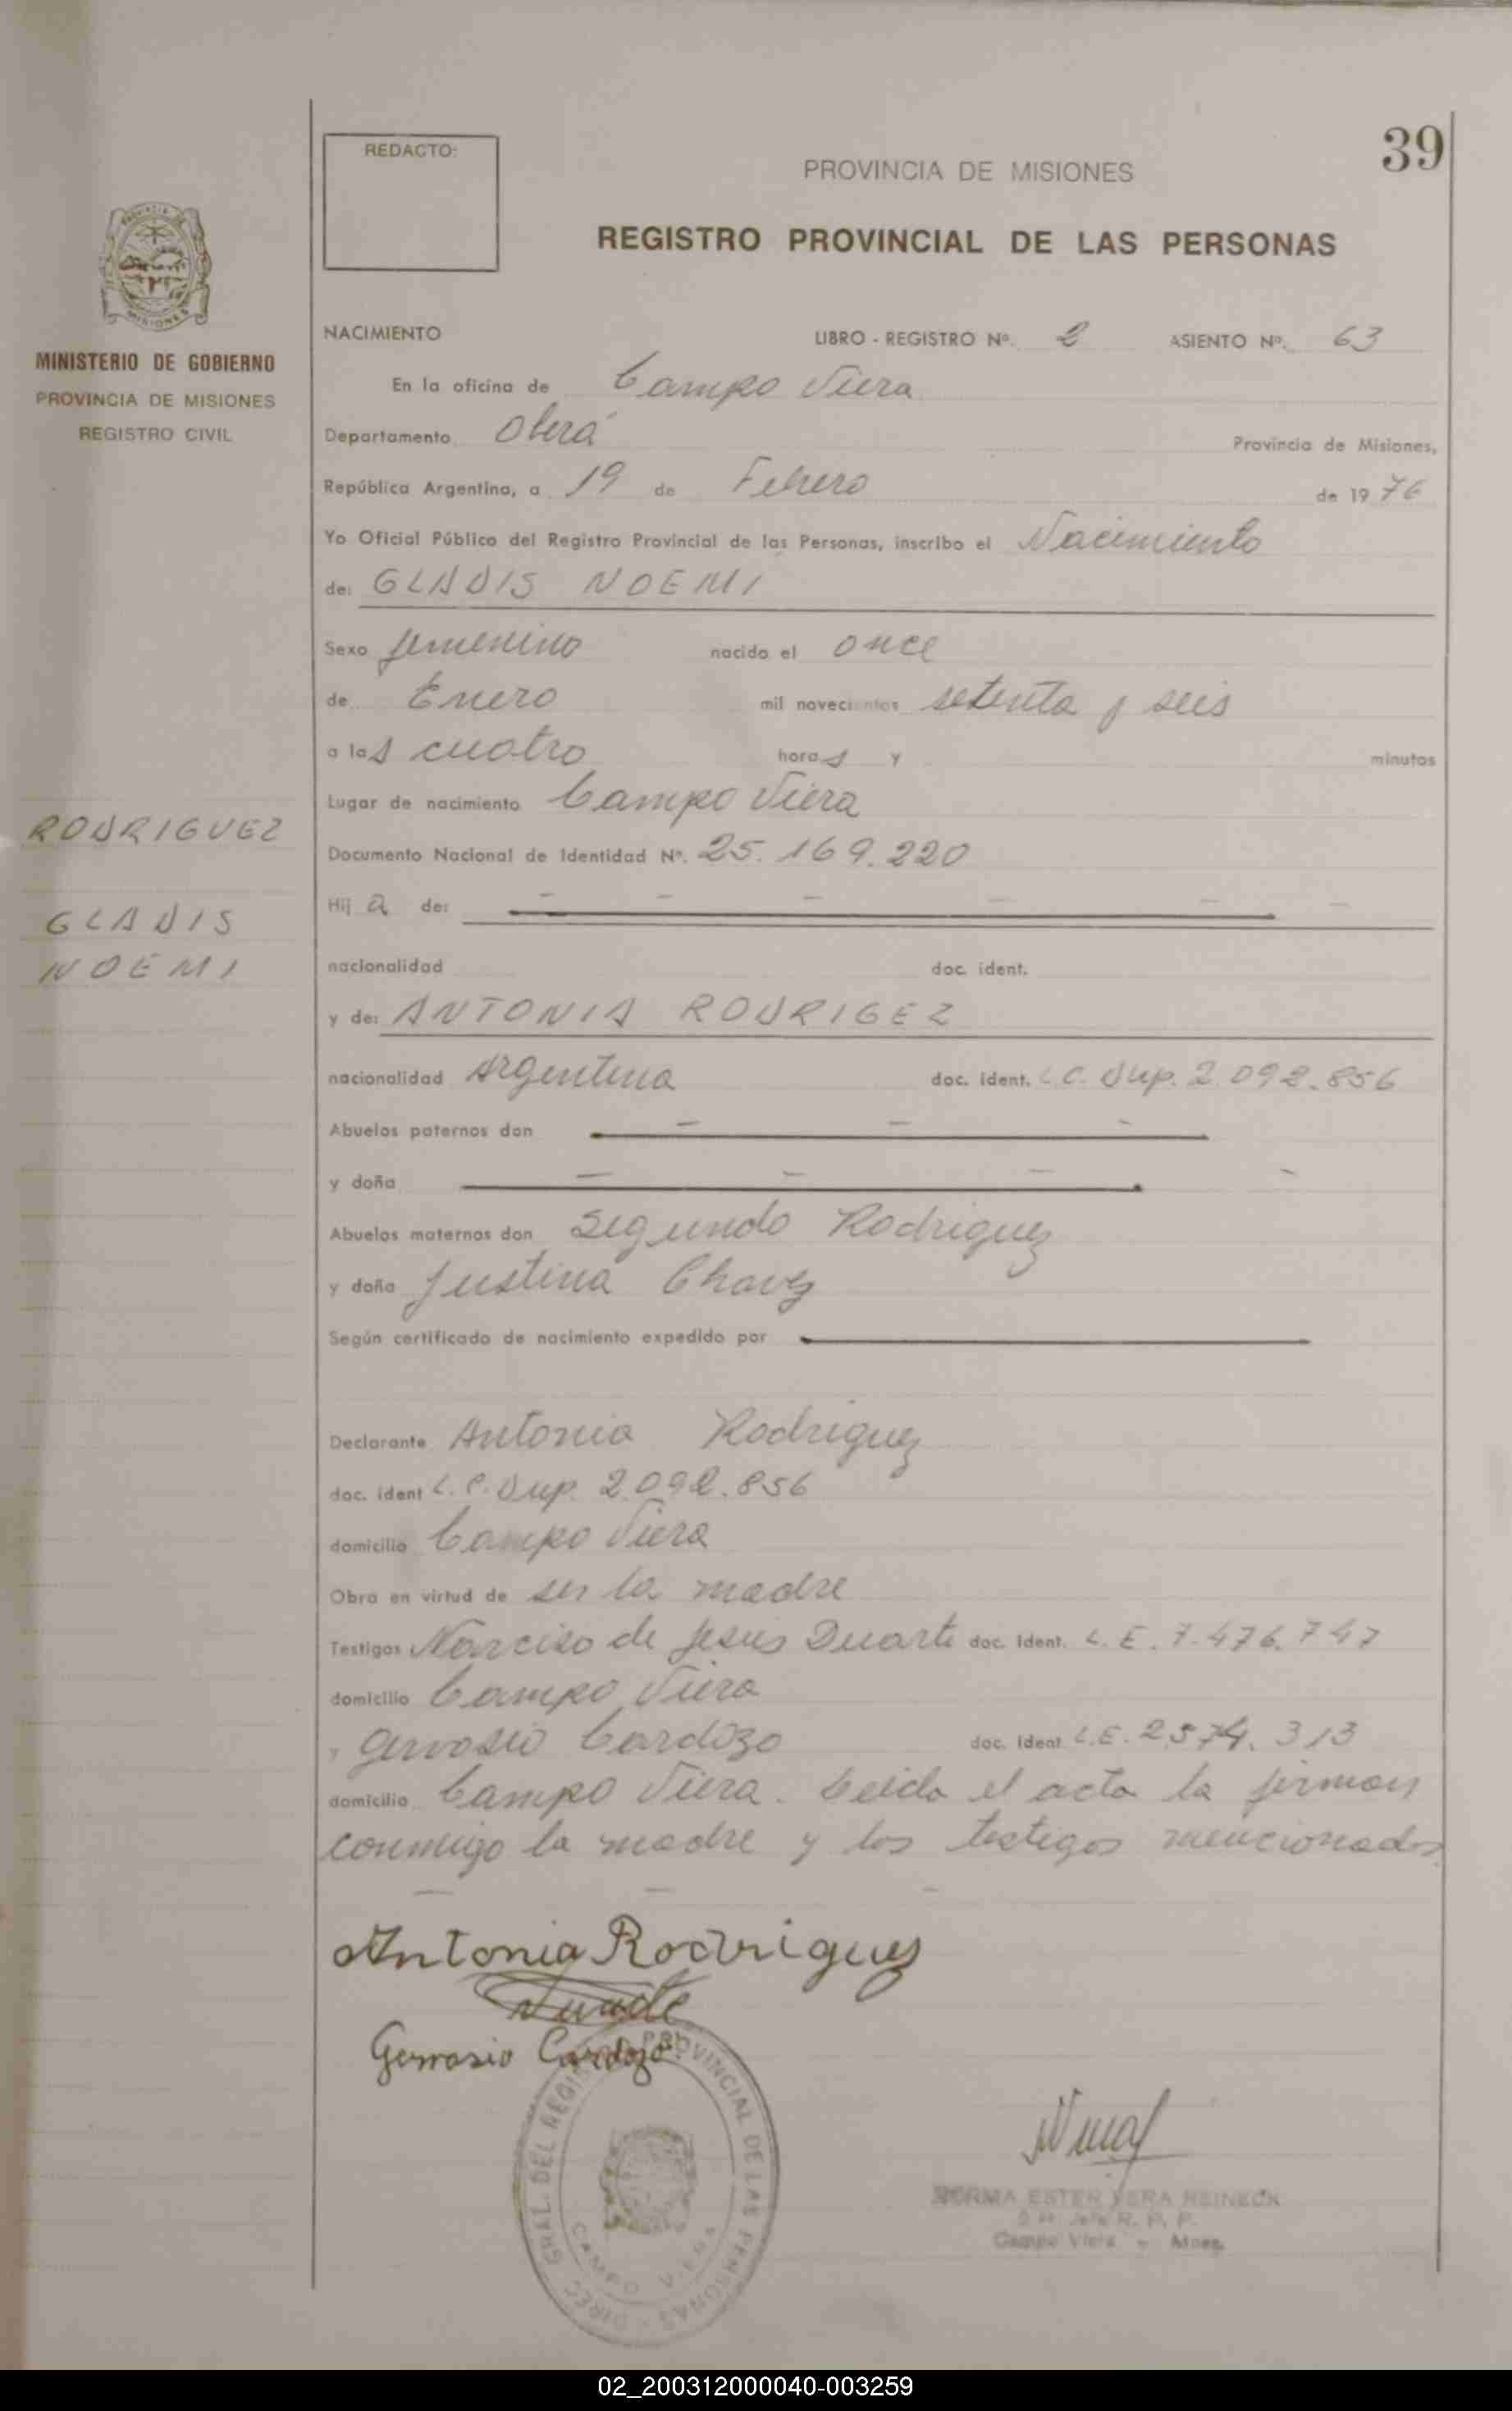 REDACTO:
39
PROVINCIA DE MISIONES
REGISTRO PROVINCIAL DE LAS PERSONAS
MINISTERIO DE GOBIERNO
PROVINCIA DE MISIONES
REGISTRO CIVIL
NACIMIENTO LIBRO - REGISTRO Nº. 2 ASIENTO Nº. 63
En la oficina de Campo Viera
Departamento Oberá Provincia de Misiones,
República Argentina, a 19 de Febrero de 1976
Yo Oficial Público del Registro Provincial de las Personas, inscribo el Nacimiento
de: GLADIS NOEMI
Sexo femenino nacido el once
de Enero mil novecientos setenta y seis
a las cuatro horas y minutos
Lugar de nacimiento Campo Viera
RODRIGUEZ
Documento Nacional de Identidad Nº. 25.169.220
Hija de:
GLADIS
NOEMI
nacionalidad doc. ident.
y de: ANTONIA RODRIGEZ
nacionalidad Argentina doc. ident. L.C. Dup. 2.092.856
Abuelos paternos don
y doña
Abuelos maternos don Segundo Rodriguez
y doña Justina Chavez
Según certificado de nacimiento expedido por
Declarante Antonia Rodriguez
doc. ident L.C. Dup. 2.092.856
domicilio Campo Viera
Obra en virtud de ser la madre
Testigos Narciso de Jesus Duarte doc. Ident. L.E. 7.476.747
domicilio Campo Viera
y Gervasio Cardozo doc. Ident L.E. 2.574.313
domicilio Campo Viera. Leida el acta la firman
conmigo la madre y los testigos mencionados
Antonia Rodriguez
Duarte
Gervasio Cardozo
DIREC. GRAL. DEL REGISTRO PROVINCIAL DE LAS PERSONAS
CAMPO VIERA
NORMA ESTER VERA REINECK
Jefe R. P. P.
Campo Viera - Mnes.
02_200312000040-003259